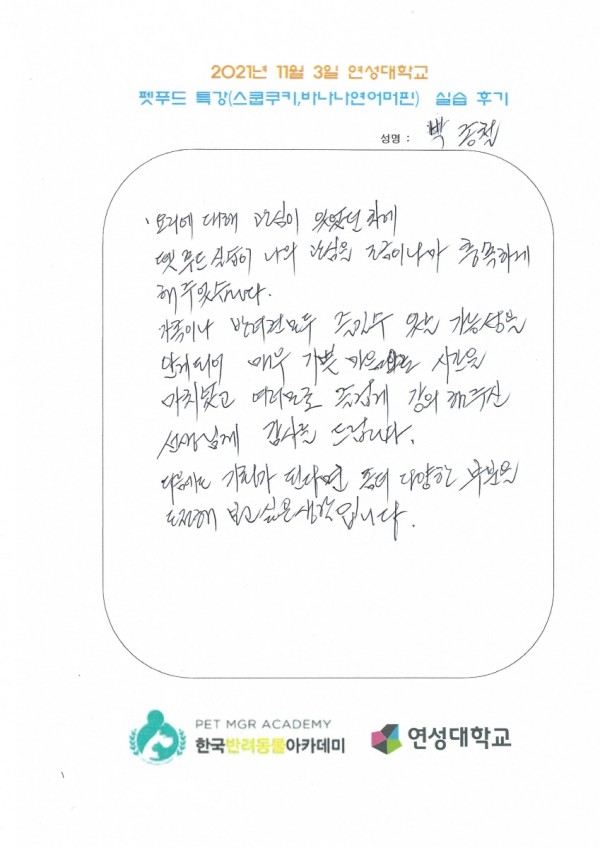 2021년 11월 3일 연성대학교
펫푸드 특강(스쿱쿠키,바나나연어머핀) 실습 후기
성명 : 박종철
요리에 대해 관심이 있었던 차에
펫푸드 실습이 나의 관심을 조금이나마 충족하게
해주었습니다.
가족이나 반려견 모두 즐길 수 있는 가능성을
알게되어 매우 기쁜 마음으로 시간을
마치었고 여러모로 즐겁게 강의 해주신
선생님께 감사를 드립니다.
다음에도 기회가 된다면 좀더 다양한 부분을
도전해 보고 싶은 생각입니다.
PET MGR ACADEMY
한국반려동물아카데미
연성대학교